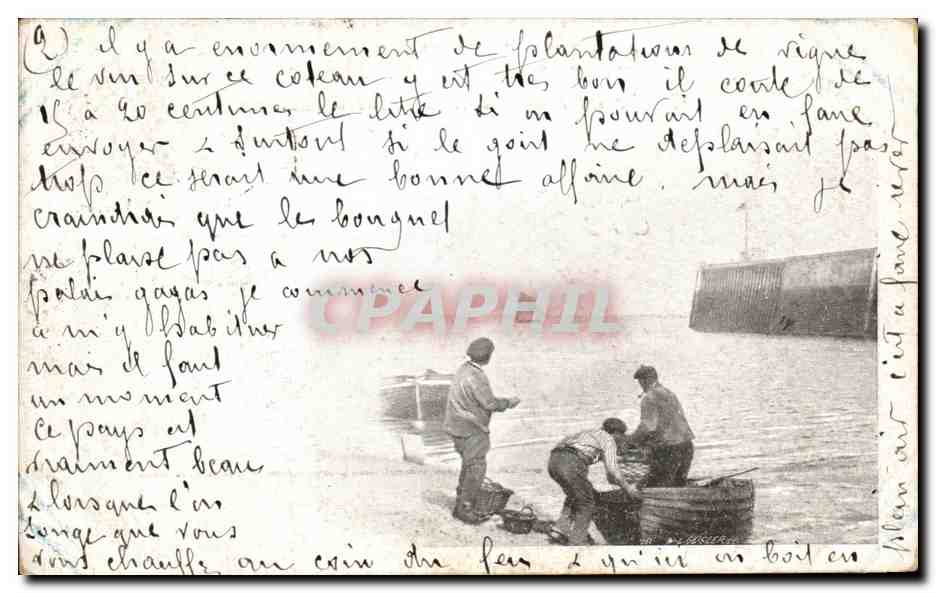 (2) il y a enormement de plantations de vigne
le vin sur ce coteau y est tres bon il coute de
15 à 20 centimes le litre si on pouvait en faire
envoyer & surtout si le goût ne deplaisait pas
trop ce serait une bonne affaire. mais je
craindrais que le bouquet
ne plaise pas a nos
palais gagas je commence
a m'y habituer
mais il faut
un moment
ce pays est
vraiment beau
& lorsque l'on
songe que vous
vous chauffez au coin du feu & qu'ici on boit en
plein air c'est a faire rever
CPAPHIL
GEISLER